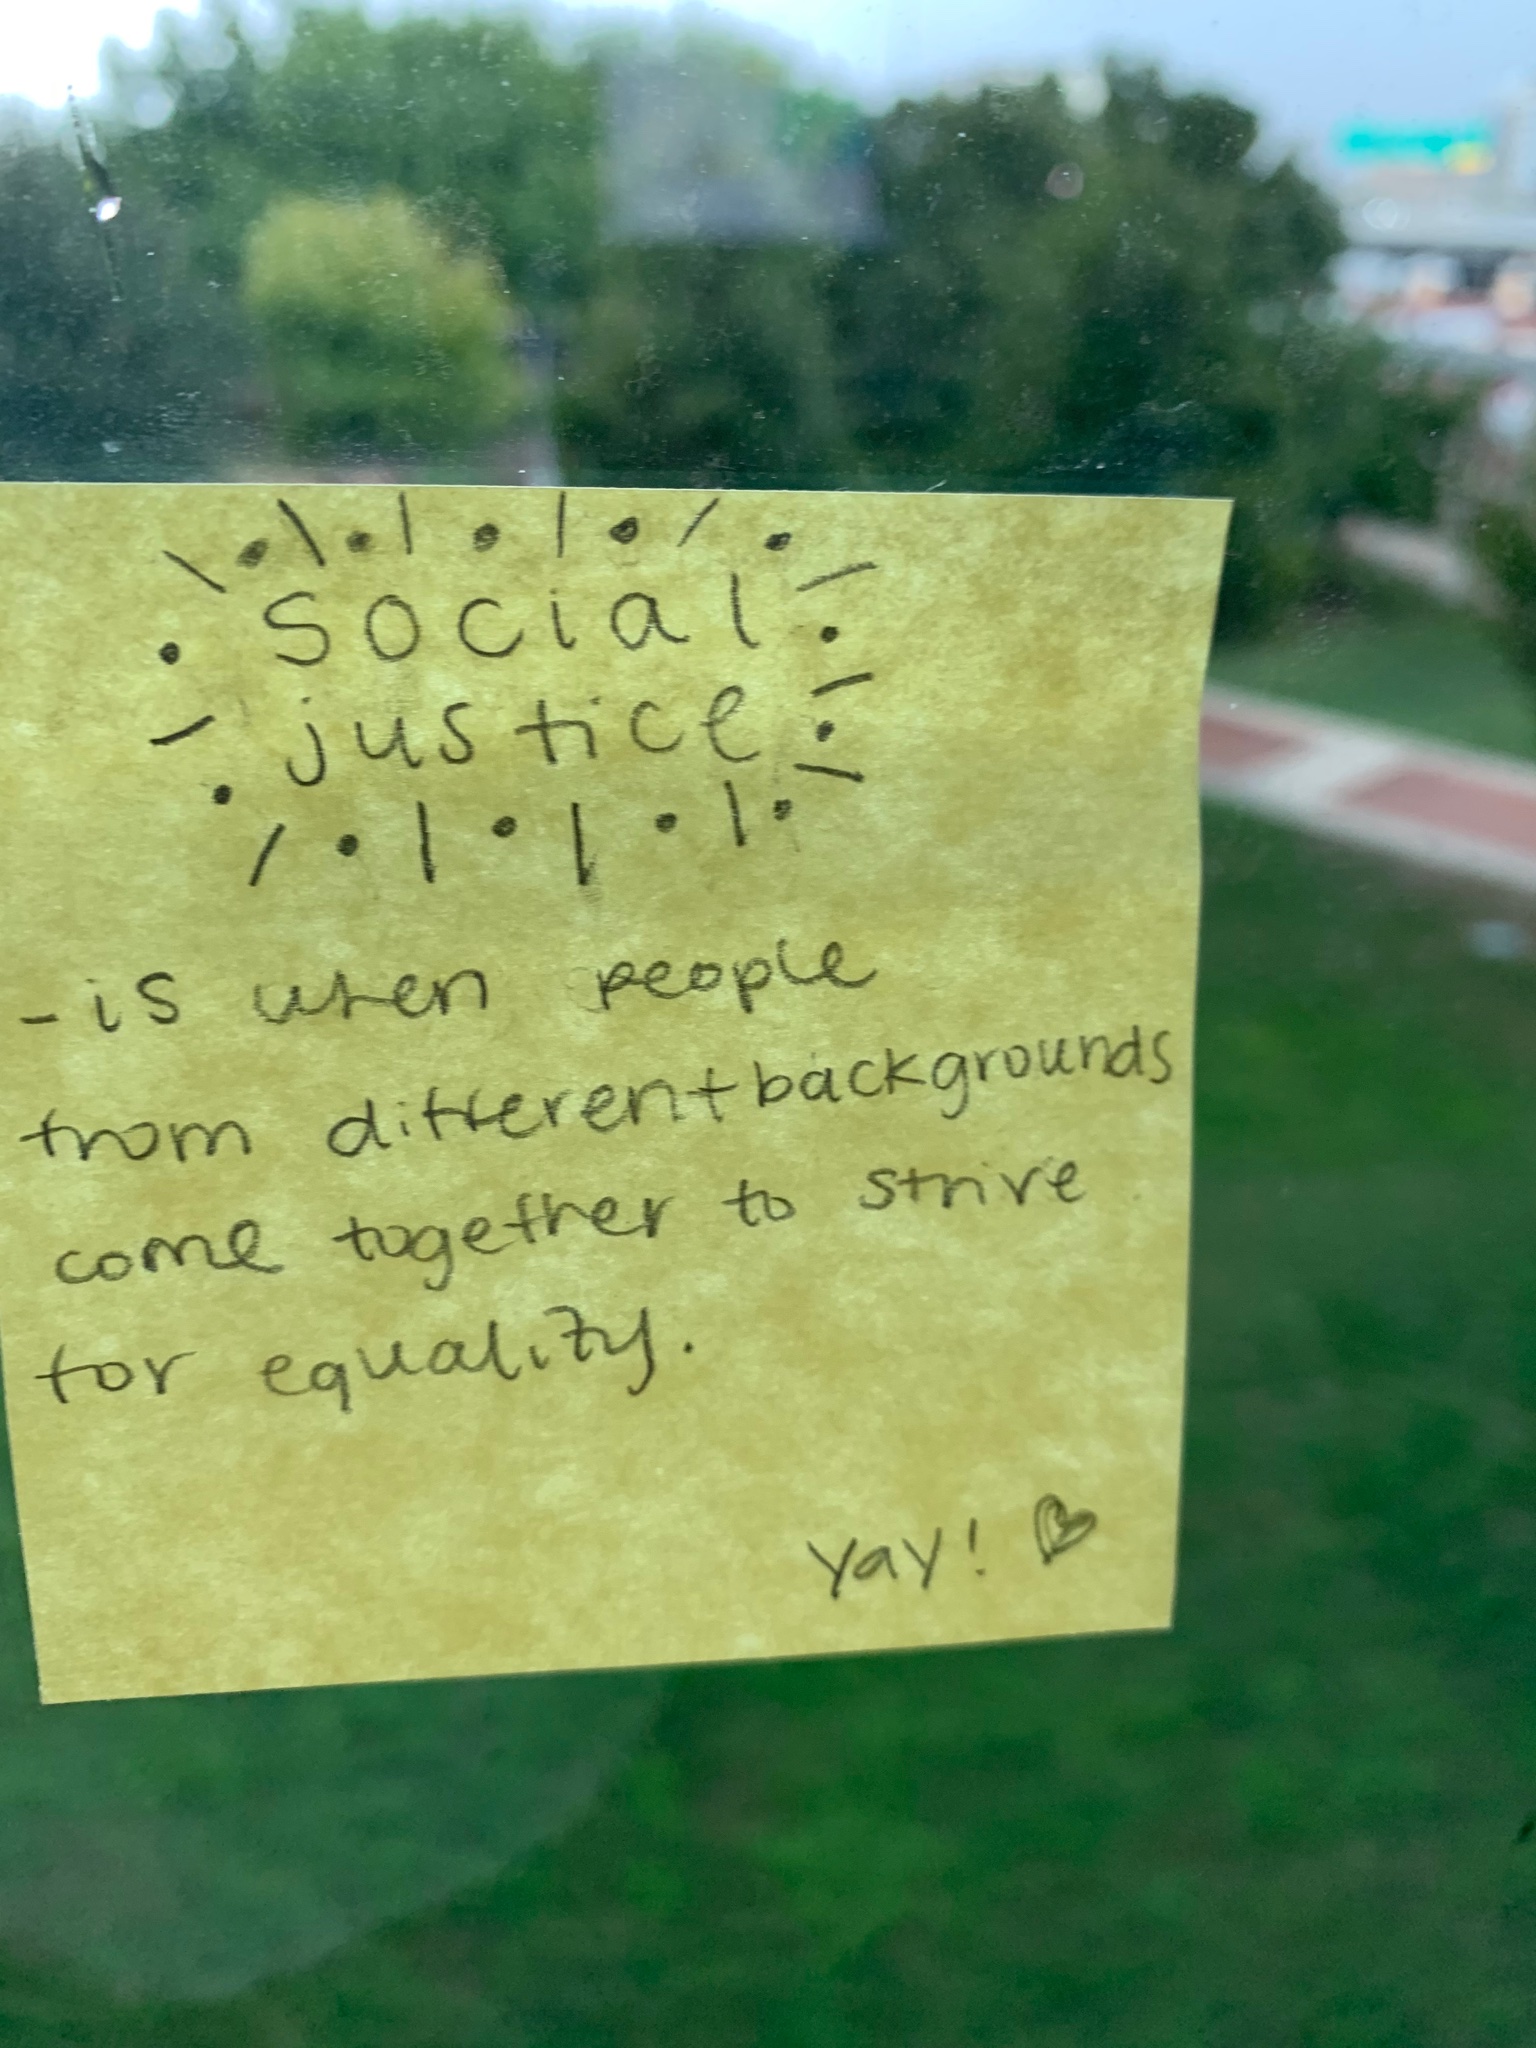 social
justice
- is when people
from different backgrounds
come together to strive
for equality.
yay! ♡